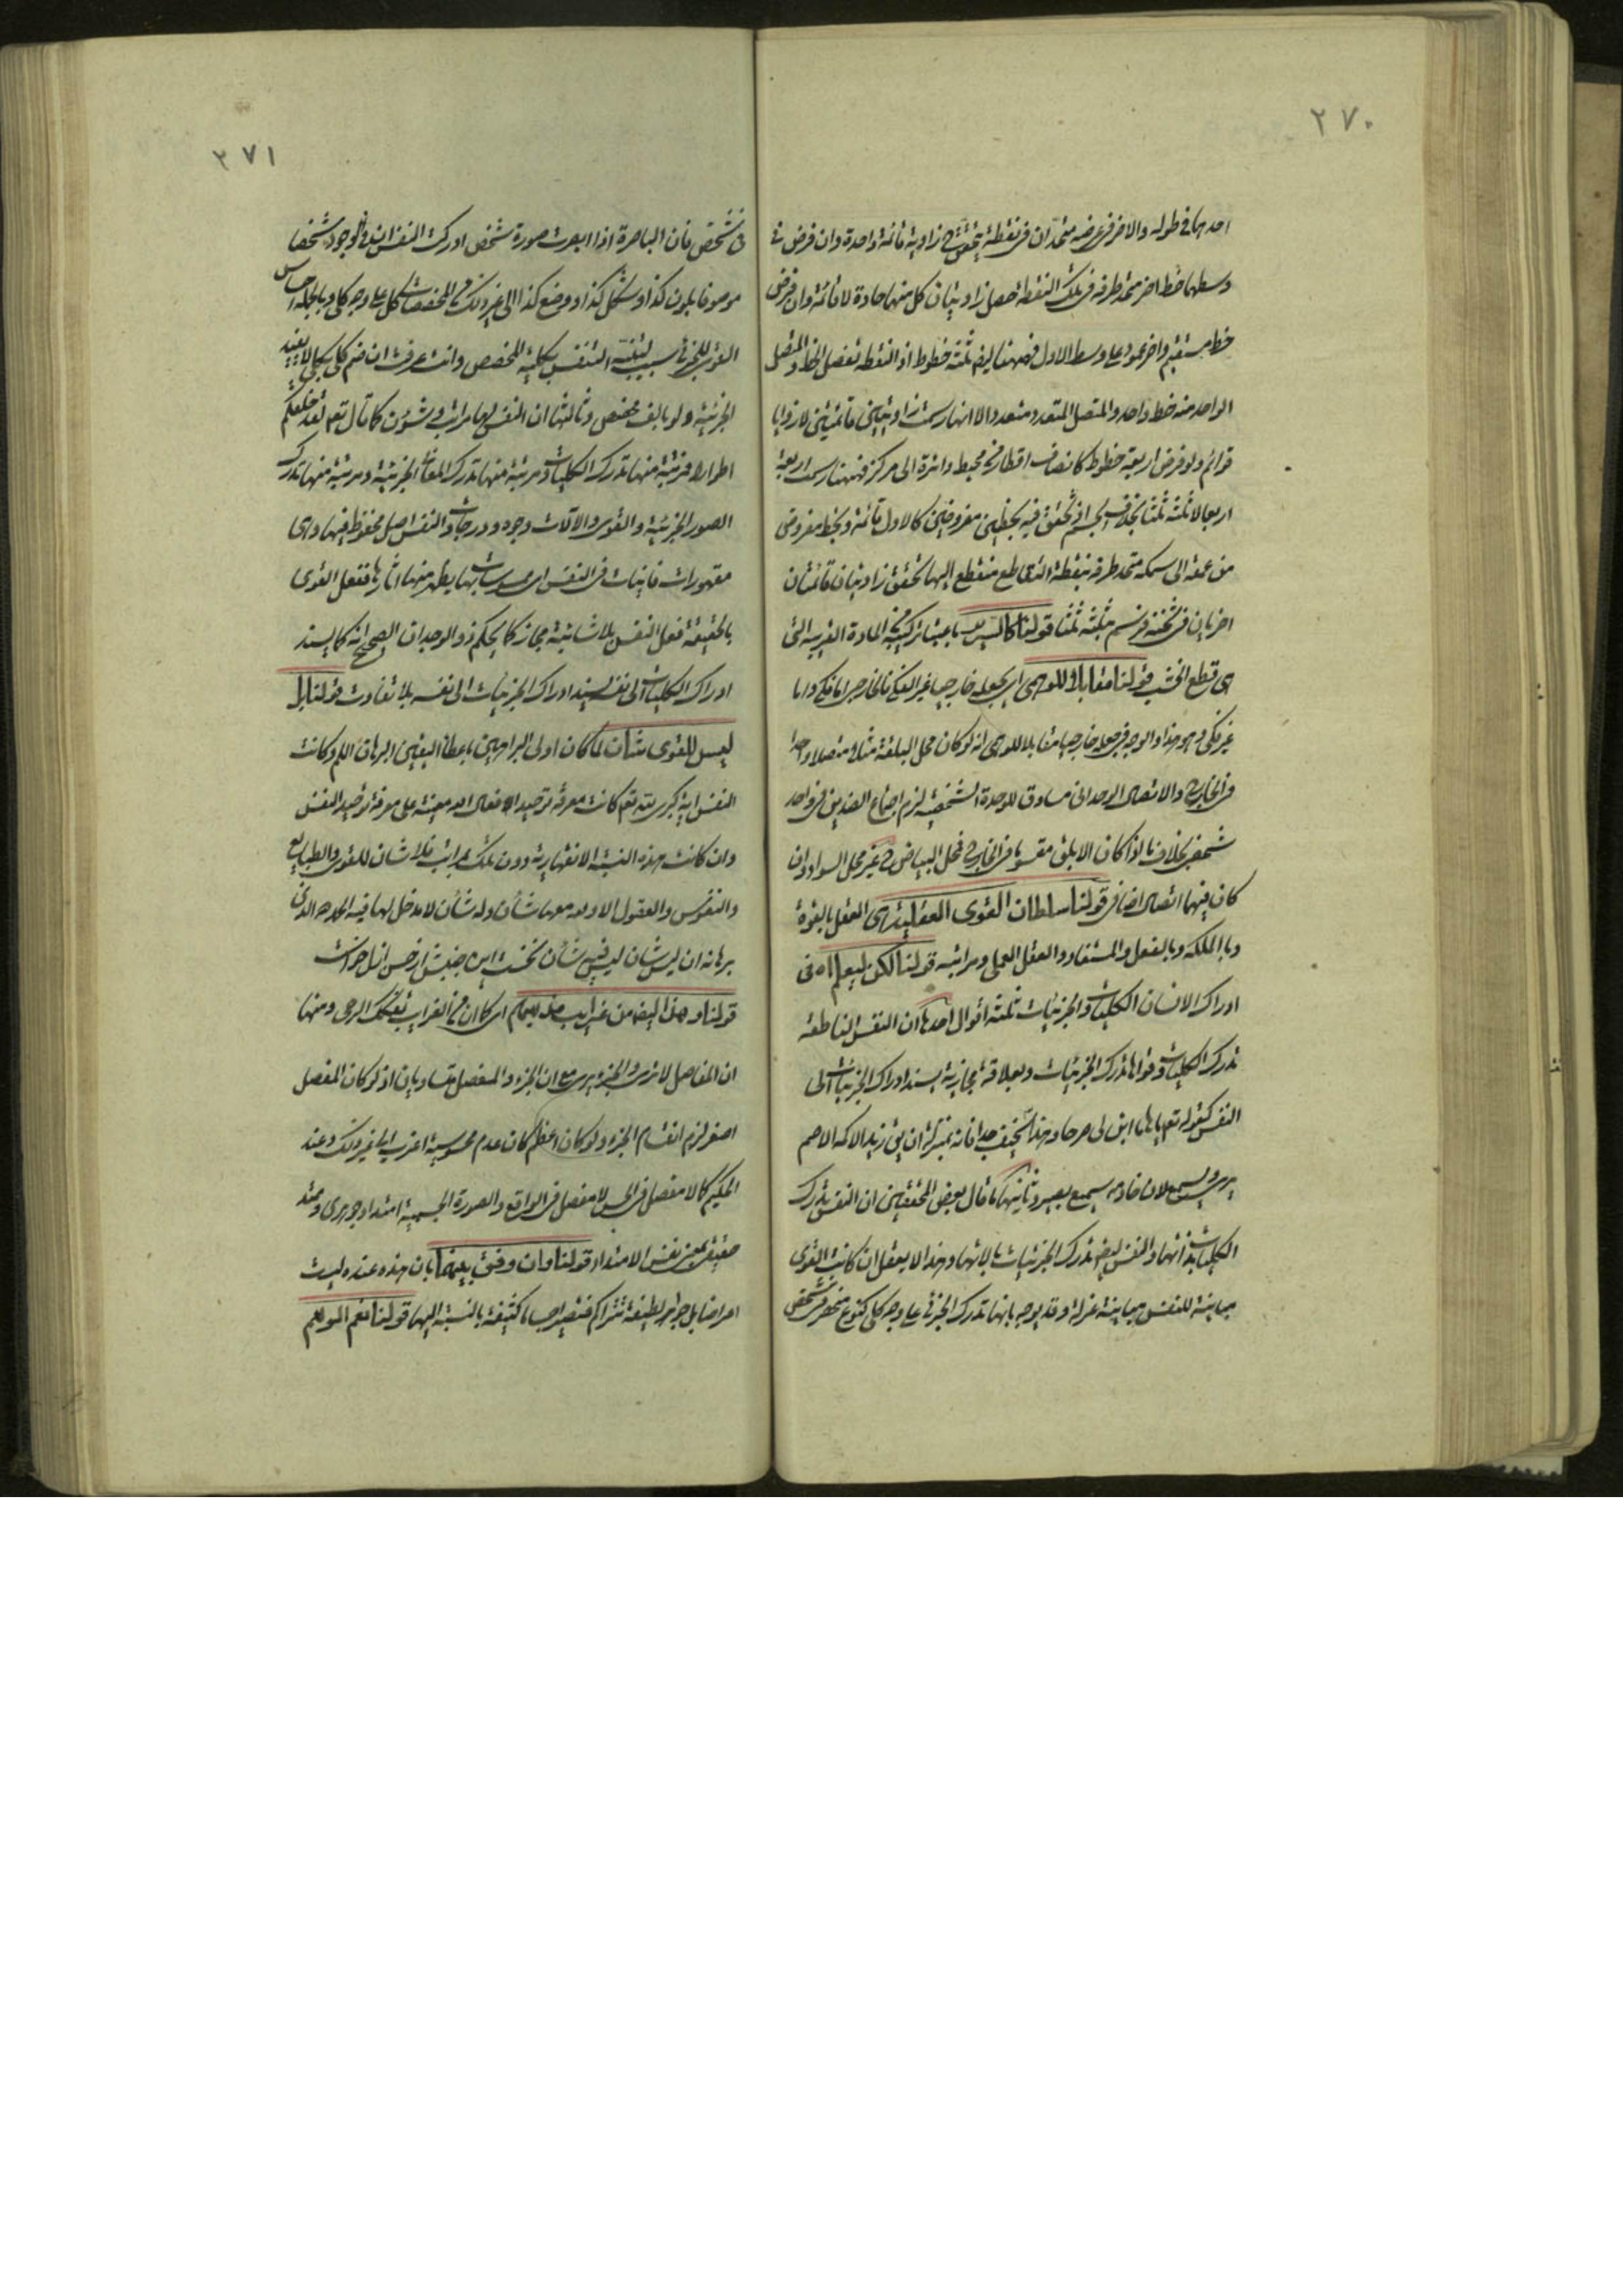 ٢٧٠
احدهما في طوله والاخر في عرضه متحدان في نقطة يتحقق ح زاوية قائمة واحدة وان فرض في
وسطهما خط اخر متحد طرفه في تلك النقطة حصل زاويتان كل منهما حادة لا قائمة وان فرض
خط مستقيم واخر عمود على وسط الاول فههنا ايضا ثلثة خطوط اذ النقطة تفصل الخط والمتصل
الواحد منه خط واحد والمتصل المتعدد متعدد والا انها رسمت زاويتين قائمتين لا زوايا
قوائم ولو فرض اربعة خطوط كانصاف اقطار من محيط دائرة الى مركز فههنا رسمت اربعة
اربعا لا ثلثة ثلثا بخلاف الجسم اذ تحقق فيه بخطين مفروضين كالاول قائمة وبخط مفروض
من عمقه الى سمكه متحد طرفه بنقطة التقاطع منقطع اليها تحقق زاويتان قائمتان
اخريان في ثخنه فرسم ثلثة ثلثا قولنا كالسرير باعتبار تركبه من المادة القريبة التي
هي قطع الخشب قولنا مقابلا للوهمي اي يجعله خارجيا غير الفكي فالخارجي اما فكي واما
غير فكي وهو هذا والوجه في جعله خارجيا مقابلا للوهمي انه لو كان محل البلقة مثلا متصلا واحدا
في الخارج والاتصال الوحداني مساوق للوحدة الشخصية لزم اجتماع الضدين في واحد
شخصي بخلاف ما اذا كان الابلق مقسوما في الخارج فمحل البياض ح غير محل السواد وان
كان فيهما اتصال اضافي قولنا سلطان القوى العقلية اي العقل بالقوة
وبالملكة وبالفعل والمستفاد والعقل العملي ومراتبه قولنا لكن ليعلم اه في
ادراك الانسان الكليات والجزئيات ثلثة اقوال احدها ان النفس الناطقة
تدرك الكليات وقواها تدرك الجزئيات وبعلاقة مجازية يسند ادراك الجزئيات الى
النفس كقوله تعم يا هامان ابن لي صرحا وهذا سخيف جدا فانه بمنزلة ان يقال زيد الاكمه الاصم
يرى ويسمع لان خادمه سميع بصير وثانيها ما قال بعض المحققين ان النفس تدرك
الكليات بذاتها والنفس ايضا تدرك الجزئيات بالاتها وهذا لا يعقل ان كانت القوى
مباينة للنفس مباينة عزلة وقد يوجه بانها تدرك الجزئي على وجه كلي كنوع منحصر في شخص
٢٧١
في شخص فان الباصرة اذا ابصرت صورة شخص ادركت النفس ان في الوجود شخصا
موصوفا بلون كذا وشكل كذا ووضع كذا الى غير ذلك من المخصصات كل على وجه كلي وبالجملة احساس
القوى للجزئي سبب لتعقل النفس بكلية المخصص وانت عرفت ان ضم كلي بكلي لا يفيد
الجزئية ولو بالف مخصص وثالثها ان النفس لها مراتب وشئون كما قال تعم لقد خلقكم
اطوارا فمرتبة منها تدرك الكليات ومرتبة منها تدرك المعاني الجزئية ومرتبة منها تدرك
الصور الجزئية والقوى والالات وجوه ودرجات والنفس اصل محفوظ فيها وهي
مقهورات فانيات في النفس بها يظهر منها اثارها ففعل القوى
بالحقيقة فعل النفس بلا شائبة مجاز كما يحكم ذو الوجدان الصحيح انه كما يسند
ادراك الكليات الى نفسه يسند ادراك الجزئيات الى نفسه بلا تفاوت قولنا بل
ليس للقوى شان لما كان اولى البراهين باعطاء اليقين البرهان اللم وكانت
النفس اية كبرى لله تعم كانت معرفة توحيد الافعال لله معينة على معرفة توحيد النفس
وان كانت هذه النسبة الانقهارية دون تلك بمراتب فلا شان للقوى والطبايع
والنفوس والعقول الا وله معها شان وله شان لا مدخل لها فيه الحمد لله الذي
برهانه ان ليس شان ليس فيه شانه نخست اين جنبش از حسن ازل خواست
قولنا وهذا ايضا من غرايب مذهبهم اي كما ان من الغرايب تفكك الرحى ومنها
ان المفاصل لا ترى والجزء يرى مع ان الجزء والمفصل متساويان اذ لو كان المفصل
اصغر لزم انقسام الجزء ولو كان اعظم كان عدم محسوسيته اغرب الى غير ذلك وعند
الحكيم كما لا مفصل في الحس لا مفصل في الواقع والصورة الجسمية امتداد جوهري وممتد
حقيقي بمعنى نفس الامتداد قولنا وان وفق بينهما بان هذه عنده ليست
اعراضا بل جواهر لطيفة تتراكم فتصير اجساما كثيفة بالنسبة اليها قولنا نعم الوهم